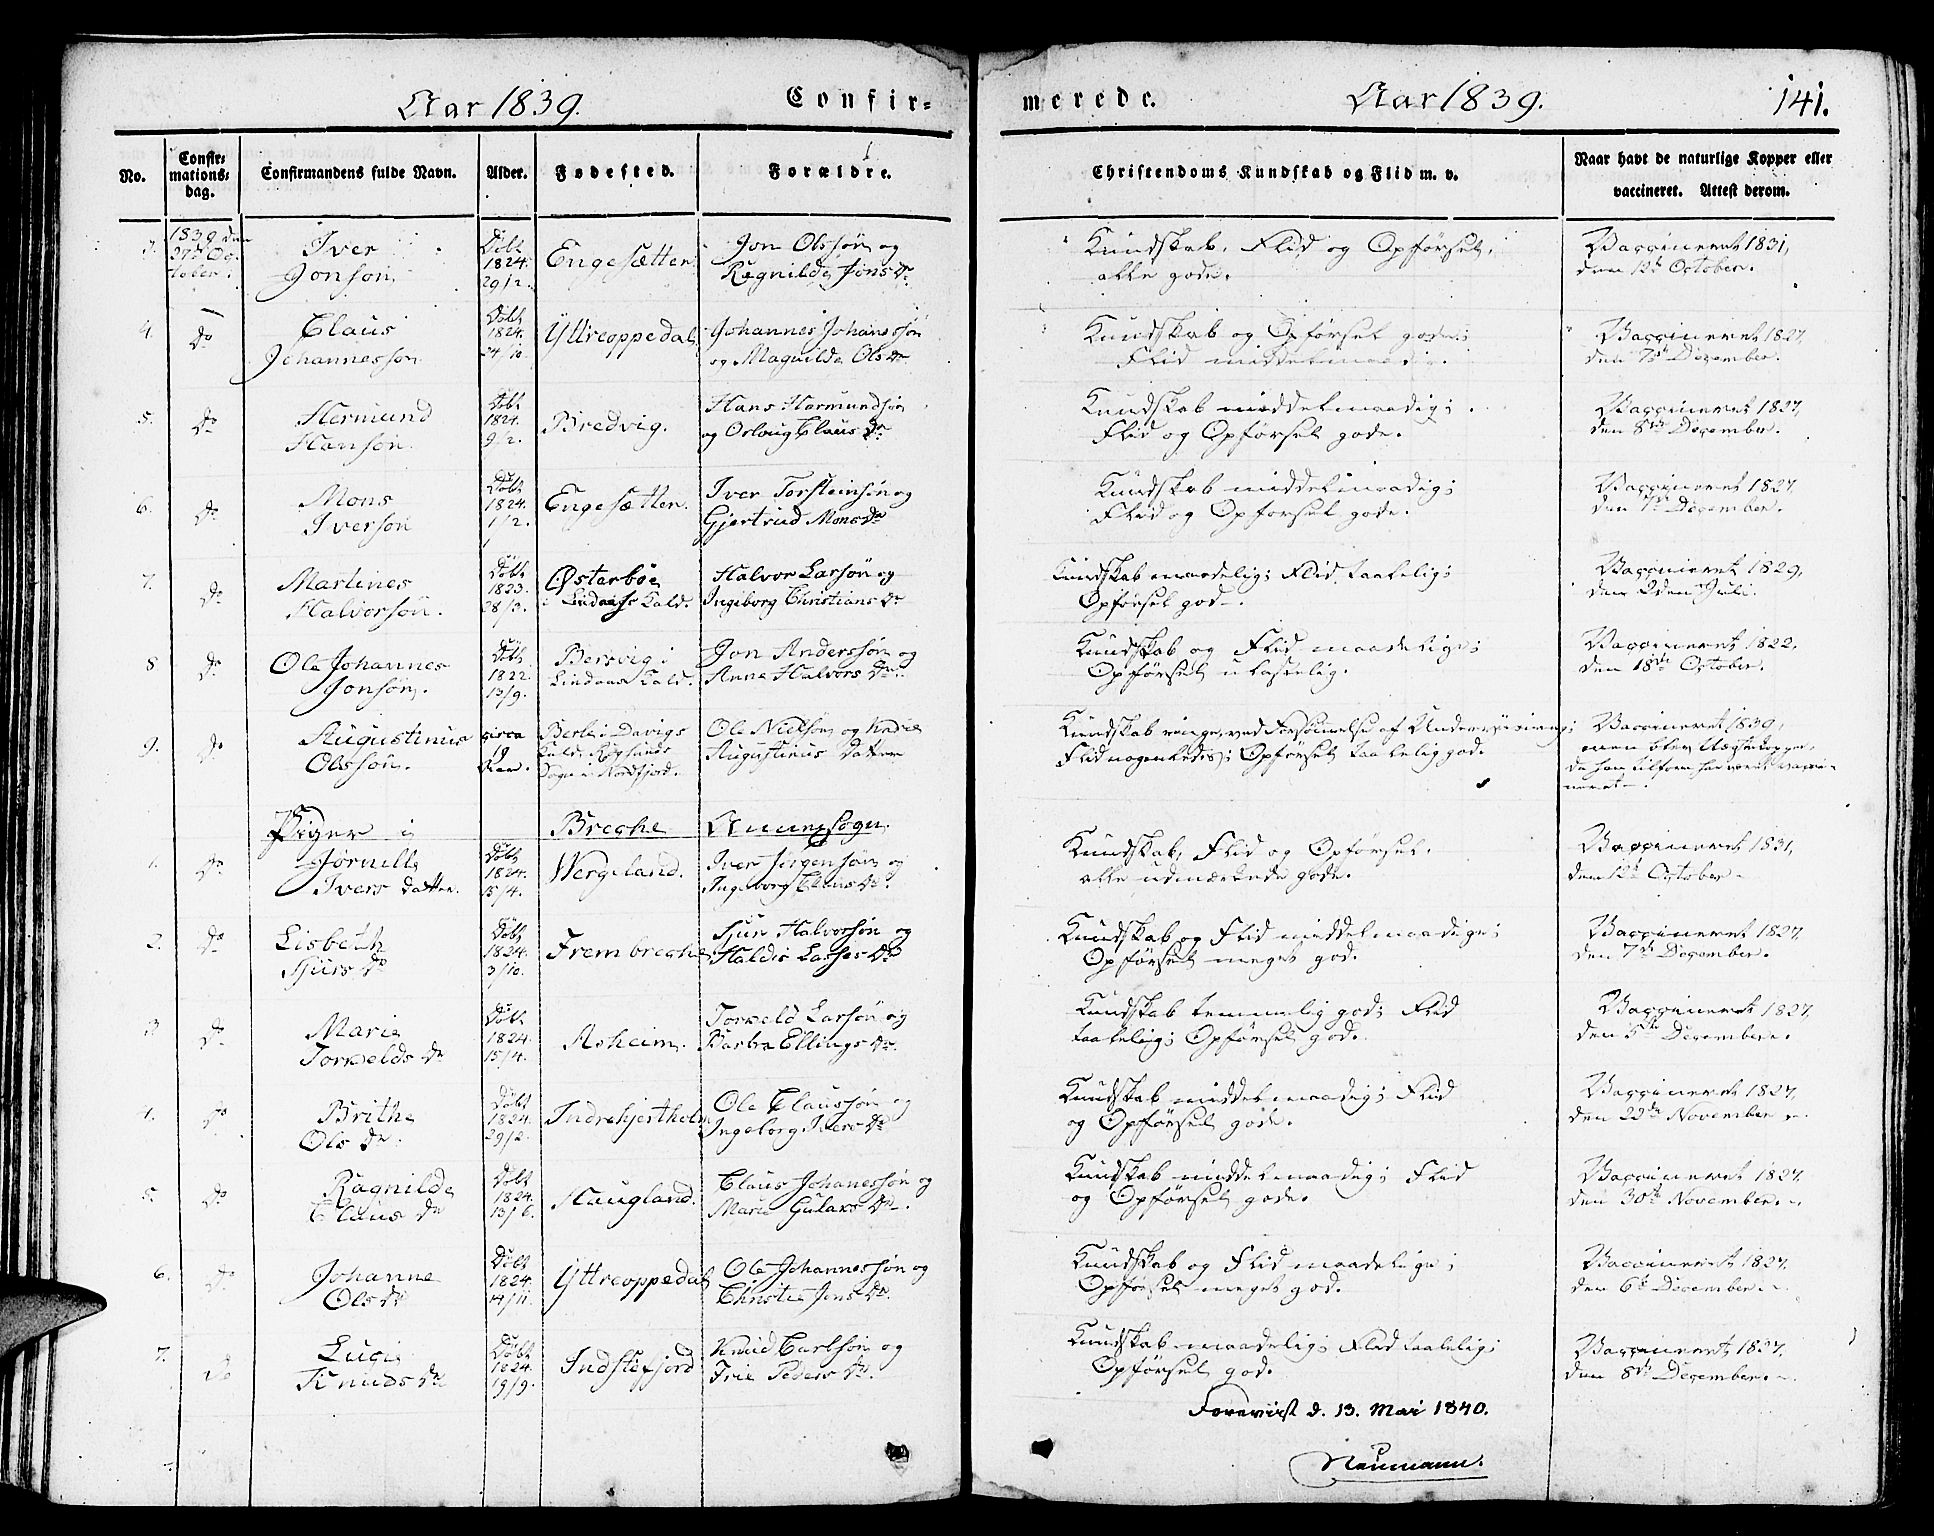 Aar 1839.
Confir-
merede.
Aar 1839.
141.
No.
Confir-
mations-
dag.
Confirmandens fulde Navn.
Alder.
Fødested.
Forældre.
Christendoms Kundskab og Flid m. v.
Naar havt de naturlige Kopper eller
vaccineret. Attest derom.
3.
1839 den
27de Oc-
tober.
Iver
Jonsøn
Døbt
1824.
29/2.
Engesætter.
Jon Olssøn og
Ragnilde Jons Dr.
Kundskab, Flid og Opførsel,
alle gode.
Vaccineret 1831,
den 12te October.
4.
Do
Claus
Johannessøn
Døbt
1824.
24/10.
Yttreoppedal,
Johannes Johannessøn
og Magnilde Ols Dr
Kundskab og Opførsel gode;
Flid middelmaadig.
Vaccineret 1827,
den 7de December.
5.
Do
Hermund
Hansøn.
Døbt
1824.
9/2.
Bredvig.
Hans Hermundsøn
og Orloug Claus Dr
Kundskab middelmaadig;
Flid og Opførsel gode.
Vaccineret 1827,
den 8de December.
6.
Do
Mons
Iversøn
Døbt
1824.
1/2.
Engesætter.
Iver Torsteinsøn og
Gjertrud Mons Dr
Kundskab middelmaadig;
Flid og Opførsel gode.
Vaccineret 1827,
den 7de December.
7.
Do
Martines
Halvorsøn.
Døbt
1823.
28/3.
Østerbøe
i Lindaas Kald.
Halvor Larsøn og
Ingeborg Christians Dr
Kundskab maadelig; Flid taalelig;
Opførsel god.
Vaccineret 1829,
den 2den Juli.
8
Do
Ole Johannes
Jonsøn.
Døbt
1822.
13/9.
Bersvig i
Lindaas Kald.
Jon Anderssøn og
Anne Halvors Dr.
Kundskab og Flid maadelige;
Opførsel ulastelig.
Vaccineret 1822,
den 18de October.
9.
Do
Augustinus
Olssøn.
circa
19
Aar.
Berle i Davigs
Kald,
Sogn i Nordfjord.
Ole Nielsøn og
Augustinus Datter
Kundskab ringe, ved Forsømmelse af Underviisning;
Flid nogenledes; Opførsel taalelig god.
Vaccineret 1839,
men blev
da han tilforn har været vacci-
neret.
Piger i
Brecke
Annexsogn.
1.
Do
Jørnille
Ivers Datter.
Døbt
1824.
15/4.
Wergeland.
Iver Jørgensøn og
Ingeborg Claus Dr.
Kundskab, Flid og Opførsel
alle udmærkede gode.
Vaccineret 1831,
den 12te October
2.
Do
Lisbeth
Sjurs Dr
Døbt
1824.
3/10.
Frembreche
Sjur Halvorsøn og
Haldis Lasses Dr
Kundskab og Flid middelmaadige;
Opførsel meget god.
Vaccineret 1827,
den 7de December.
3
Do
Marie
Torkelds Dr
Døbt
1824.
15/4.
Asheim.
Torkeld Larsøn og
Barbra Ellings Dr.
Kundskab temmelig god; Flid
taalelig; Opførsel god.
Vaccineret 1827,
den 5te December.
4.
Do
Brithe
Ols Dr.
Døbt
1824.
29/2.
Indrehjertholm
Ole Claussøn og
Ingeborg Ivers Dr
Kundskab middelmaadig; Flid
og Opførsel gode.
Vaccineret 1827,
den 29de November
5.
Do
Ragnilde
Claus Dr
Døbt
1824.
13/6.
Haugland.
Claus Johanessøn og
Marie Gulaks Dr.
Kundskab middelmaadig; Flid
og Opførsel gode.
Vaccineret 1827,
den 30te November.
6.
Do
Johanne
Ols Dr
Døbt
1824.
14/11.
Yttreoppedal
Ole Johannessøn og
Christie Jens Dr.
Kundskab og Flid maadelige;
Opførsel meget god.
Vaccineret 1827,
den 6te December.
7.
Do
Lucie
Knuds Dr
Døbt
1824.
19/9.
Indstefjord
Knud Carlsøn og
Frie Peders Dr.
Kundskab maadelig; Flid taalelig;
Opførsel god.
Vaccineret 1827,
den 8de December.
Foreviist d. 13. Mai 1840.
Neumann.